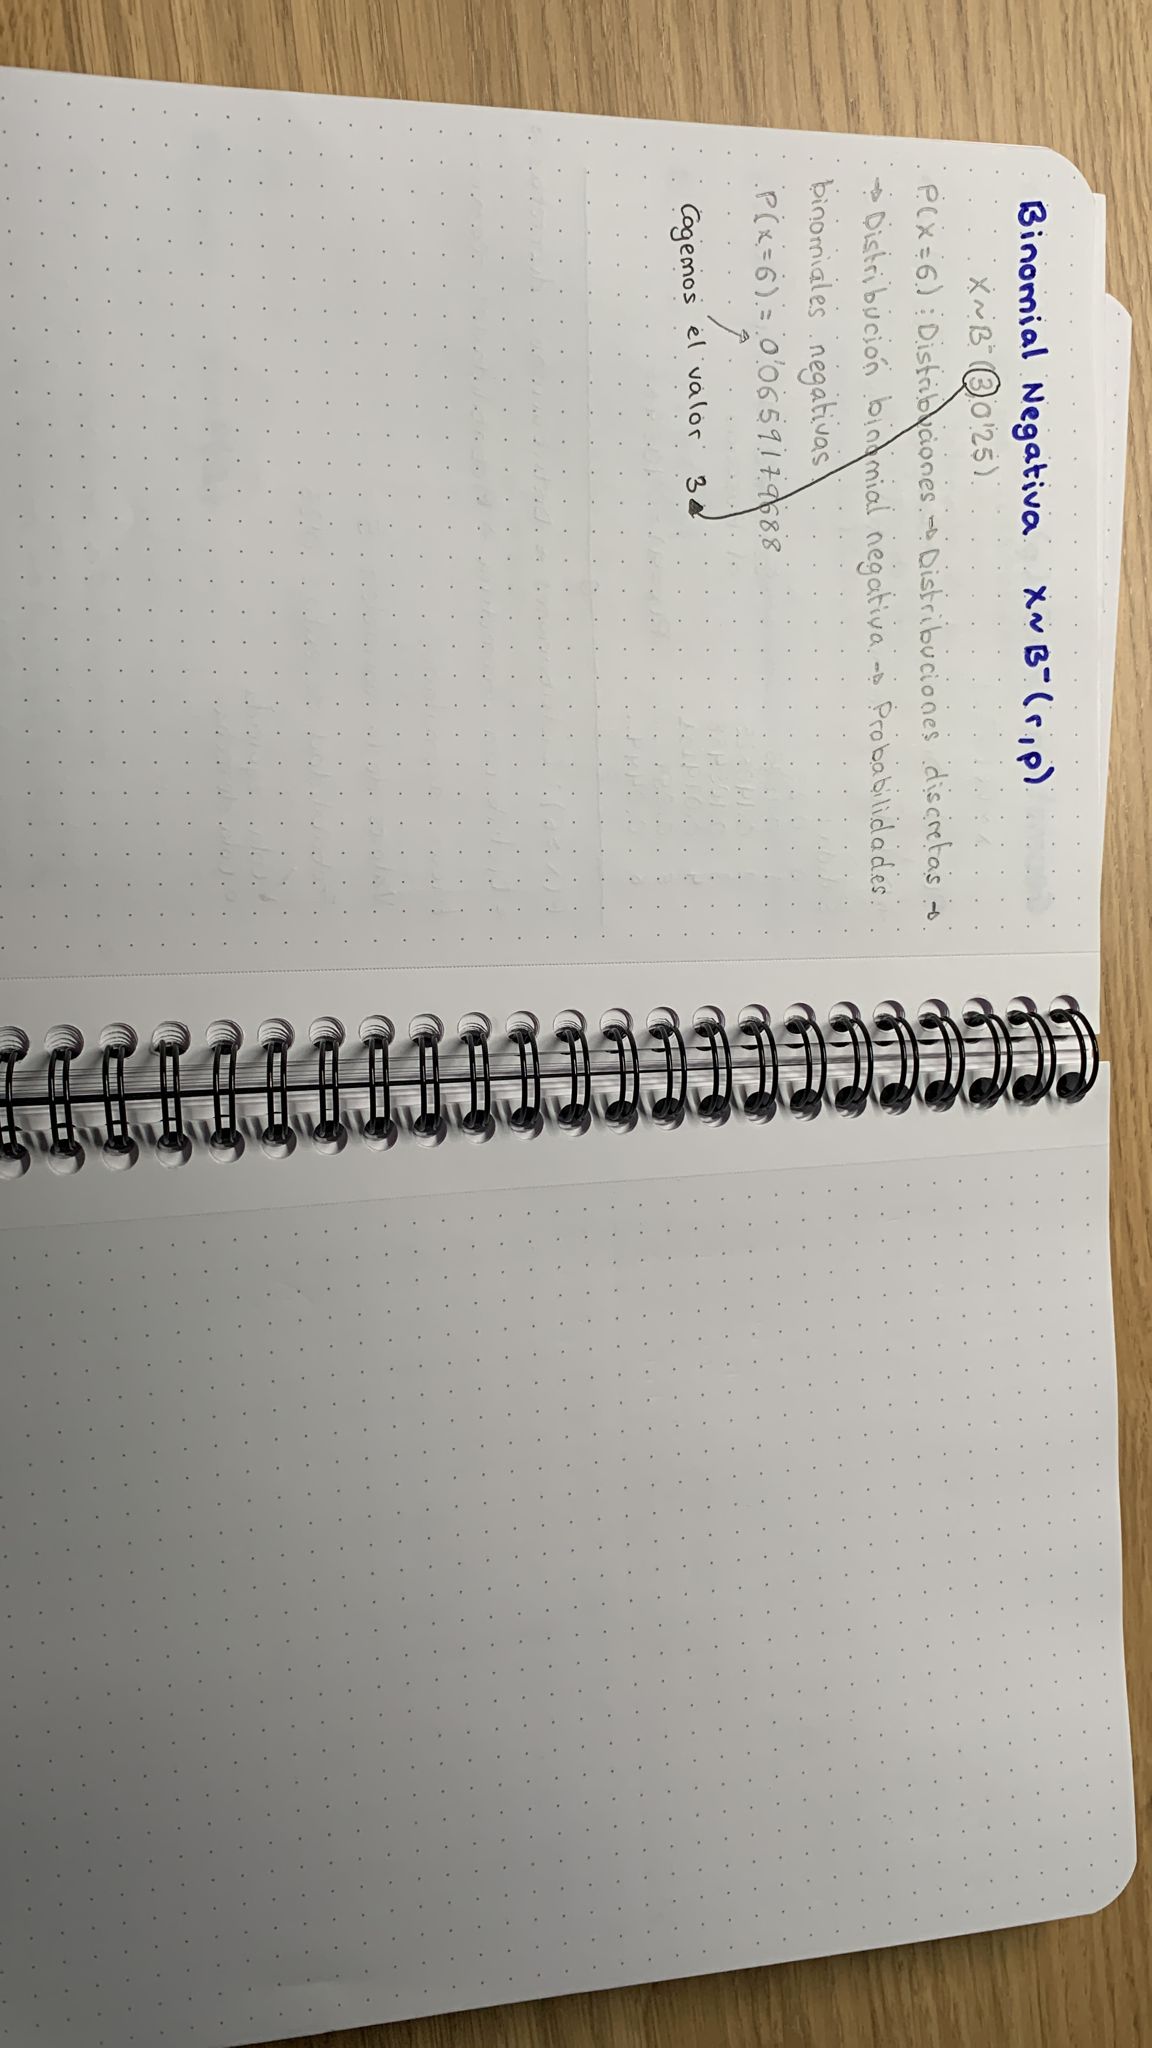 Binomial Negativa X~B⁻(r,p)
X~B⁻(3,0'25)
P(X=6): Distribuciones → Distribuciones discretas →
→ Distribución binomial negativa → Probabilidades
binomiales negativas
P(X=6) = 0'0659179688
Cogemos el valor 3